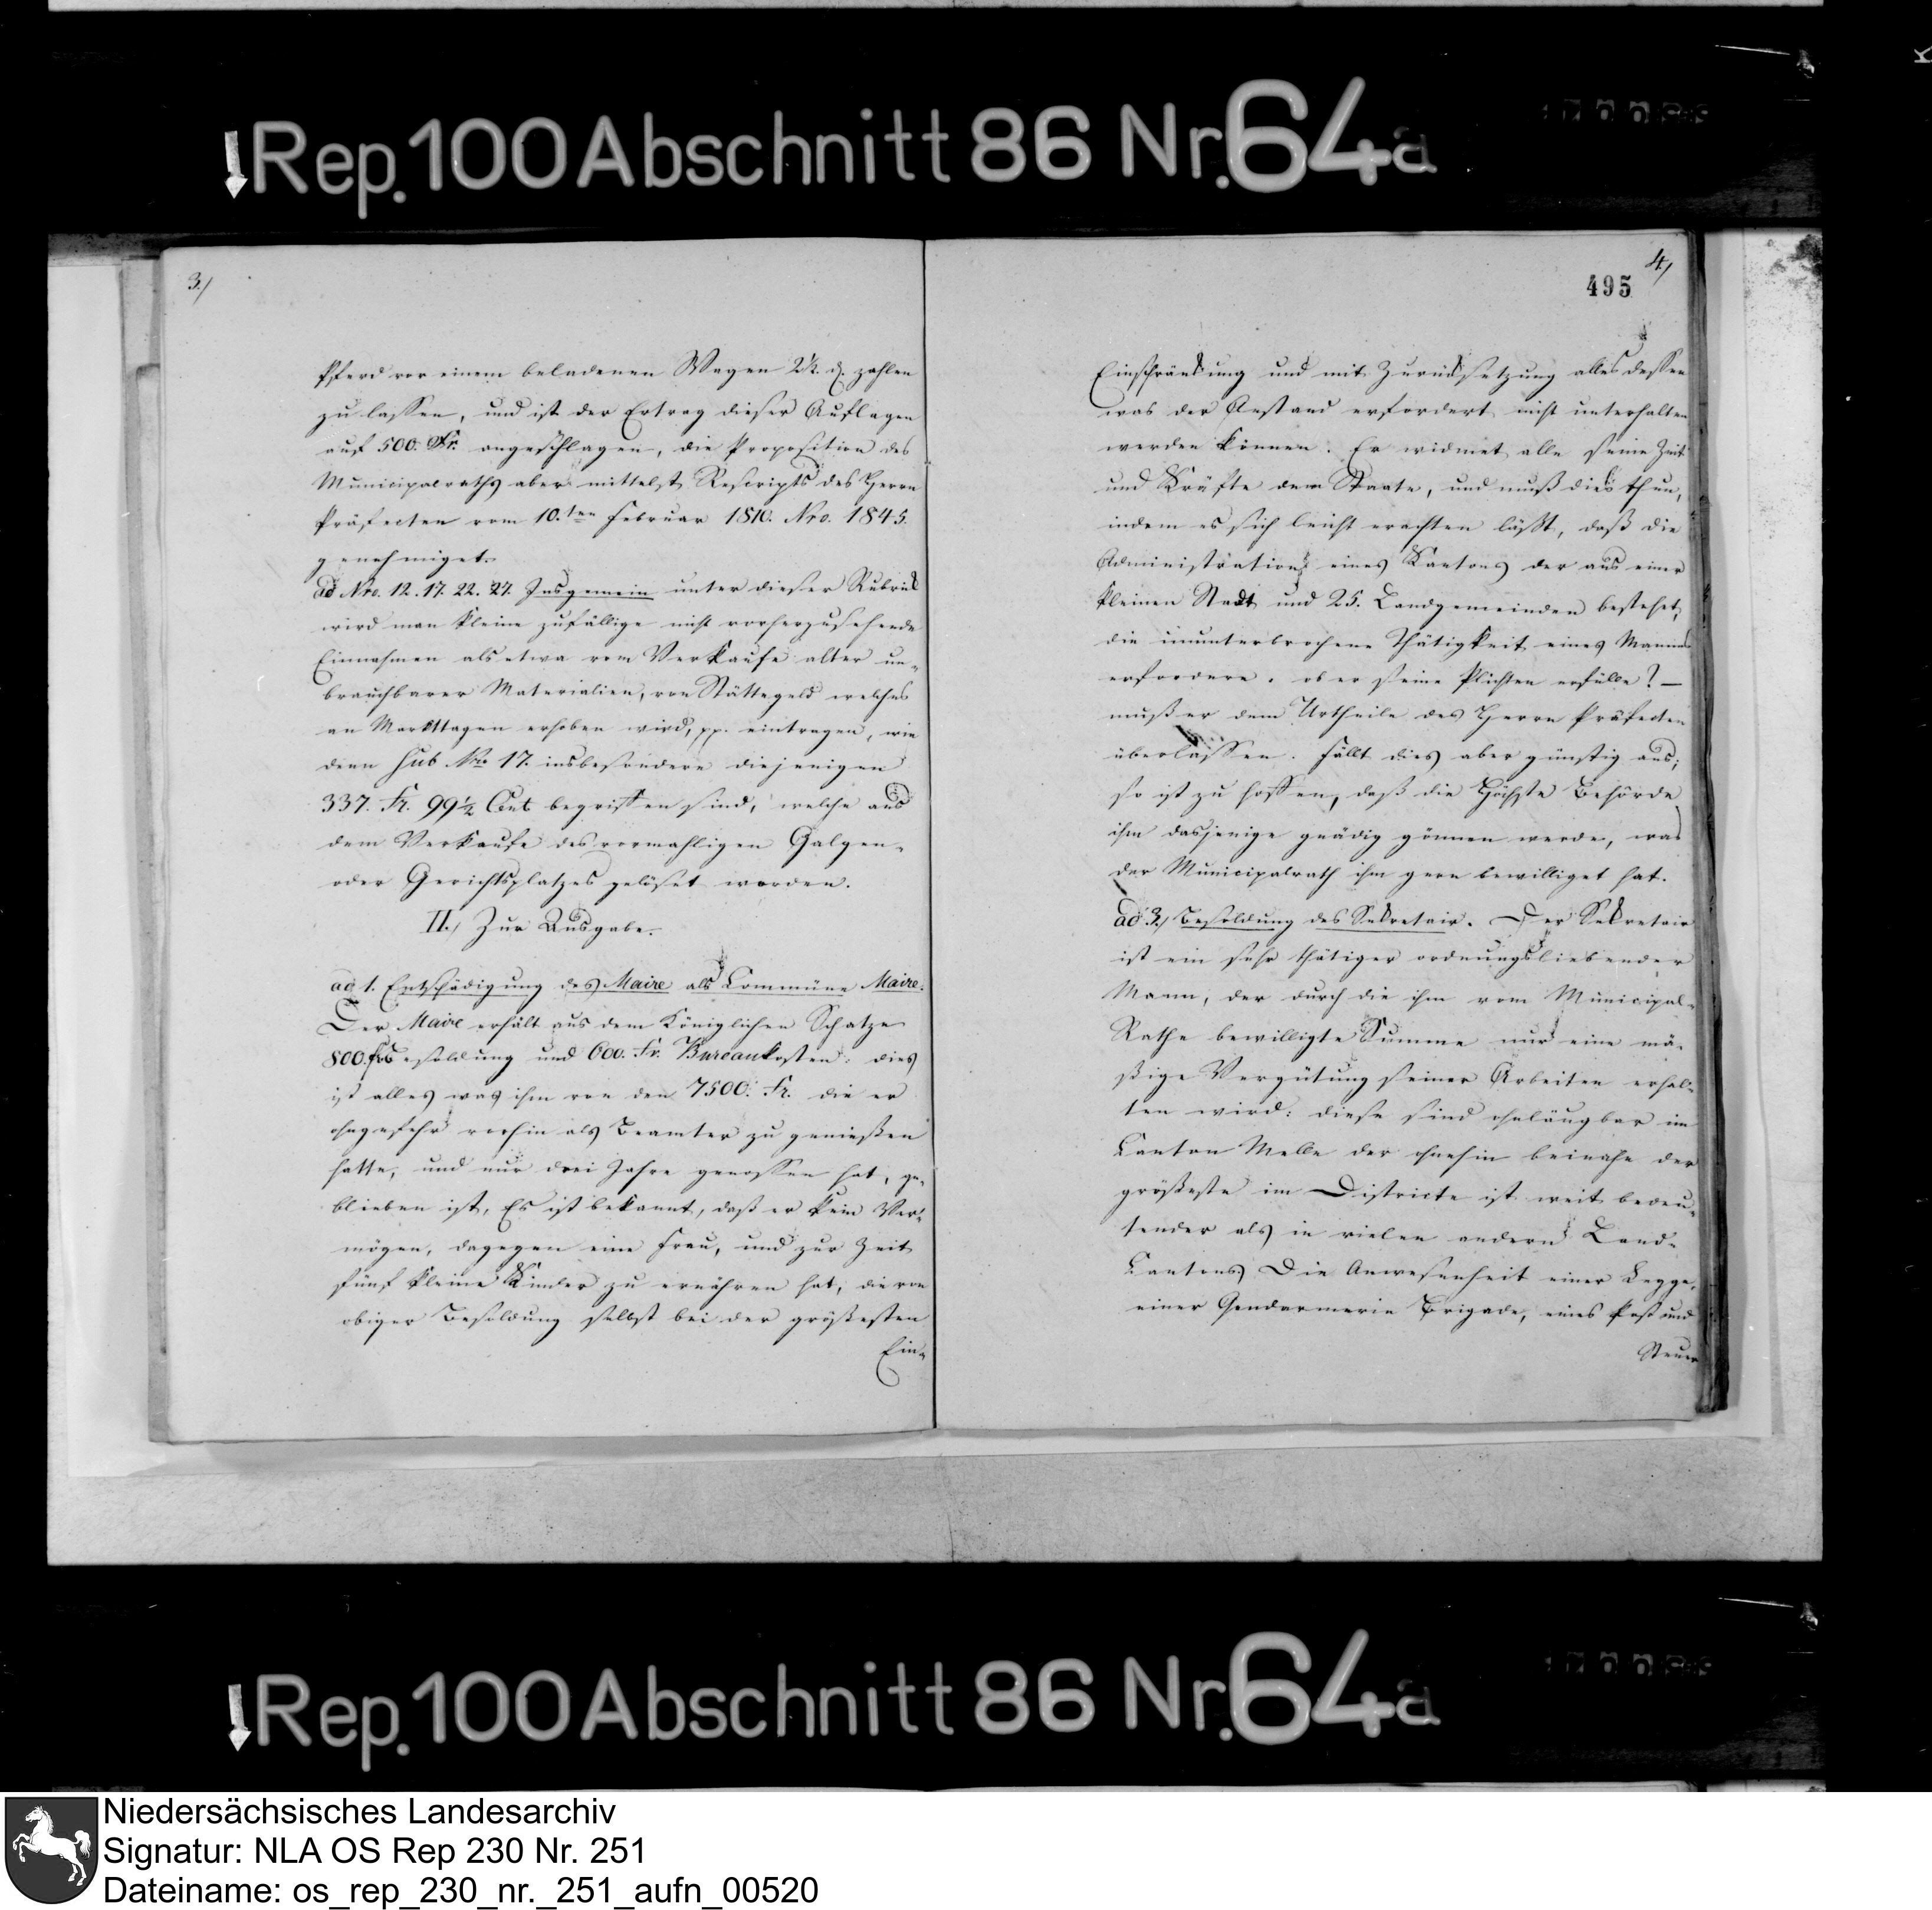 Rep. 100 Abschnitt 86 Nr. 64a
3./
Pferd vor einem beladenen Wagen 2 . d. zahlen
zu lassen, und ist der Ertrag dieser Auflagen
auf 500. Fr. angeschlagen, die Proposition des
Municipalraths aber mittelst Rescripts des Herrn
Präfecten vom 10.ten Februar 1810. Nro. 1845.
genehmiget.
ad Nro. 12. 17. 22. 27. Insgemein unter dieser Rubrick
wird man kleine zufällige nicht vorherzusehende
Einnahmen als etwa vom Verkaufe alter un-
brauchbarer Materialien, von Stättegeld welches
an Markttagen erhoben wird, pp. eintragen, wie
denn sub Nro 17. insbesondere diejenigen
337. Fr. 99½ Cent begriffen sind, welche aus
dem Verkaufe des vormahligen Galgen-
oder Gerichtsplatzes gelöset worden.
II./ Zur Ausgabe.
ad 1. Entschädigung des Maire als Commüne Maire.
Der Maire erhält aus dem Königlichen Schatze
800. fr. Besoldung und 600. Fr. Bureaukosten: dies
ist alles was ihm von den 7500. Fr. die er
ohngefehr vorhin als Beamter zu genießen
hatte, und nur drei Jahre genossen hat, ge-
blieben ist, Es ist bekannt, daß er kein Ver-
mögen, dagegen eine Frau, und zur Zeit
fünf kleine Kinder zu ernähren hat, die von
obiger Besoldung selbst bei der größesten
Ein-
4/
495
Einschränckung und mit Zurücksetzung alles dessen
was der Anstand erfordert nicht unterhalten
werden können. Er widmet alle seine Zeit
und Kräfte dem Staate, und muß dies thun,
indem es sich leicht erachten läßt, daß die
Administration eines Kantons der aus einer
kleinen Stadt und 25. Landgemeinden bestehet,
die ununterbrochene Thätigkeit eines Mannes
erfordere. ob er seine Plichten erfülle? —
muß er dem Urtheile des Herrn Präfecten
überlassen. Fällt dies aber günstig aus;
so ist zu hoffen, daß die Höchste Behörde
ihm dasjenige gnädig gönnen werde, was
der Municipalrath ihm gern bewilliget hat.
ad 3./ Besoldung des Sekretair. Der Sekretair
ist ein sehr thätiger ordnungsliebender
Mann, der durch die ihm vom Municipal-
Rathe bewilligte Summe nur eine mä-
ßige Vergütung seiner Arbeiten erhal-
ten wird: diese sind ohnläugbar im
Canton Melle der ohnehin beinahe der
größeste im Districte ist weit bedeu-
tender als in vielen andern Land-
Cantons Die Anwesenheit einer Legge,
einer Gendarmerie Brigade, eines Post und
Steuer
Rep. 100 Abschnitt 86 Nr. 64a
Niedersächsisches Landesarchiv
Signatur: NLA OS Rep 230 Nr. 251
Dateiname: os_rep_230_nr._251_aufn_00520